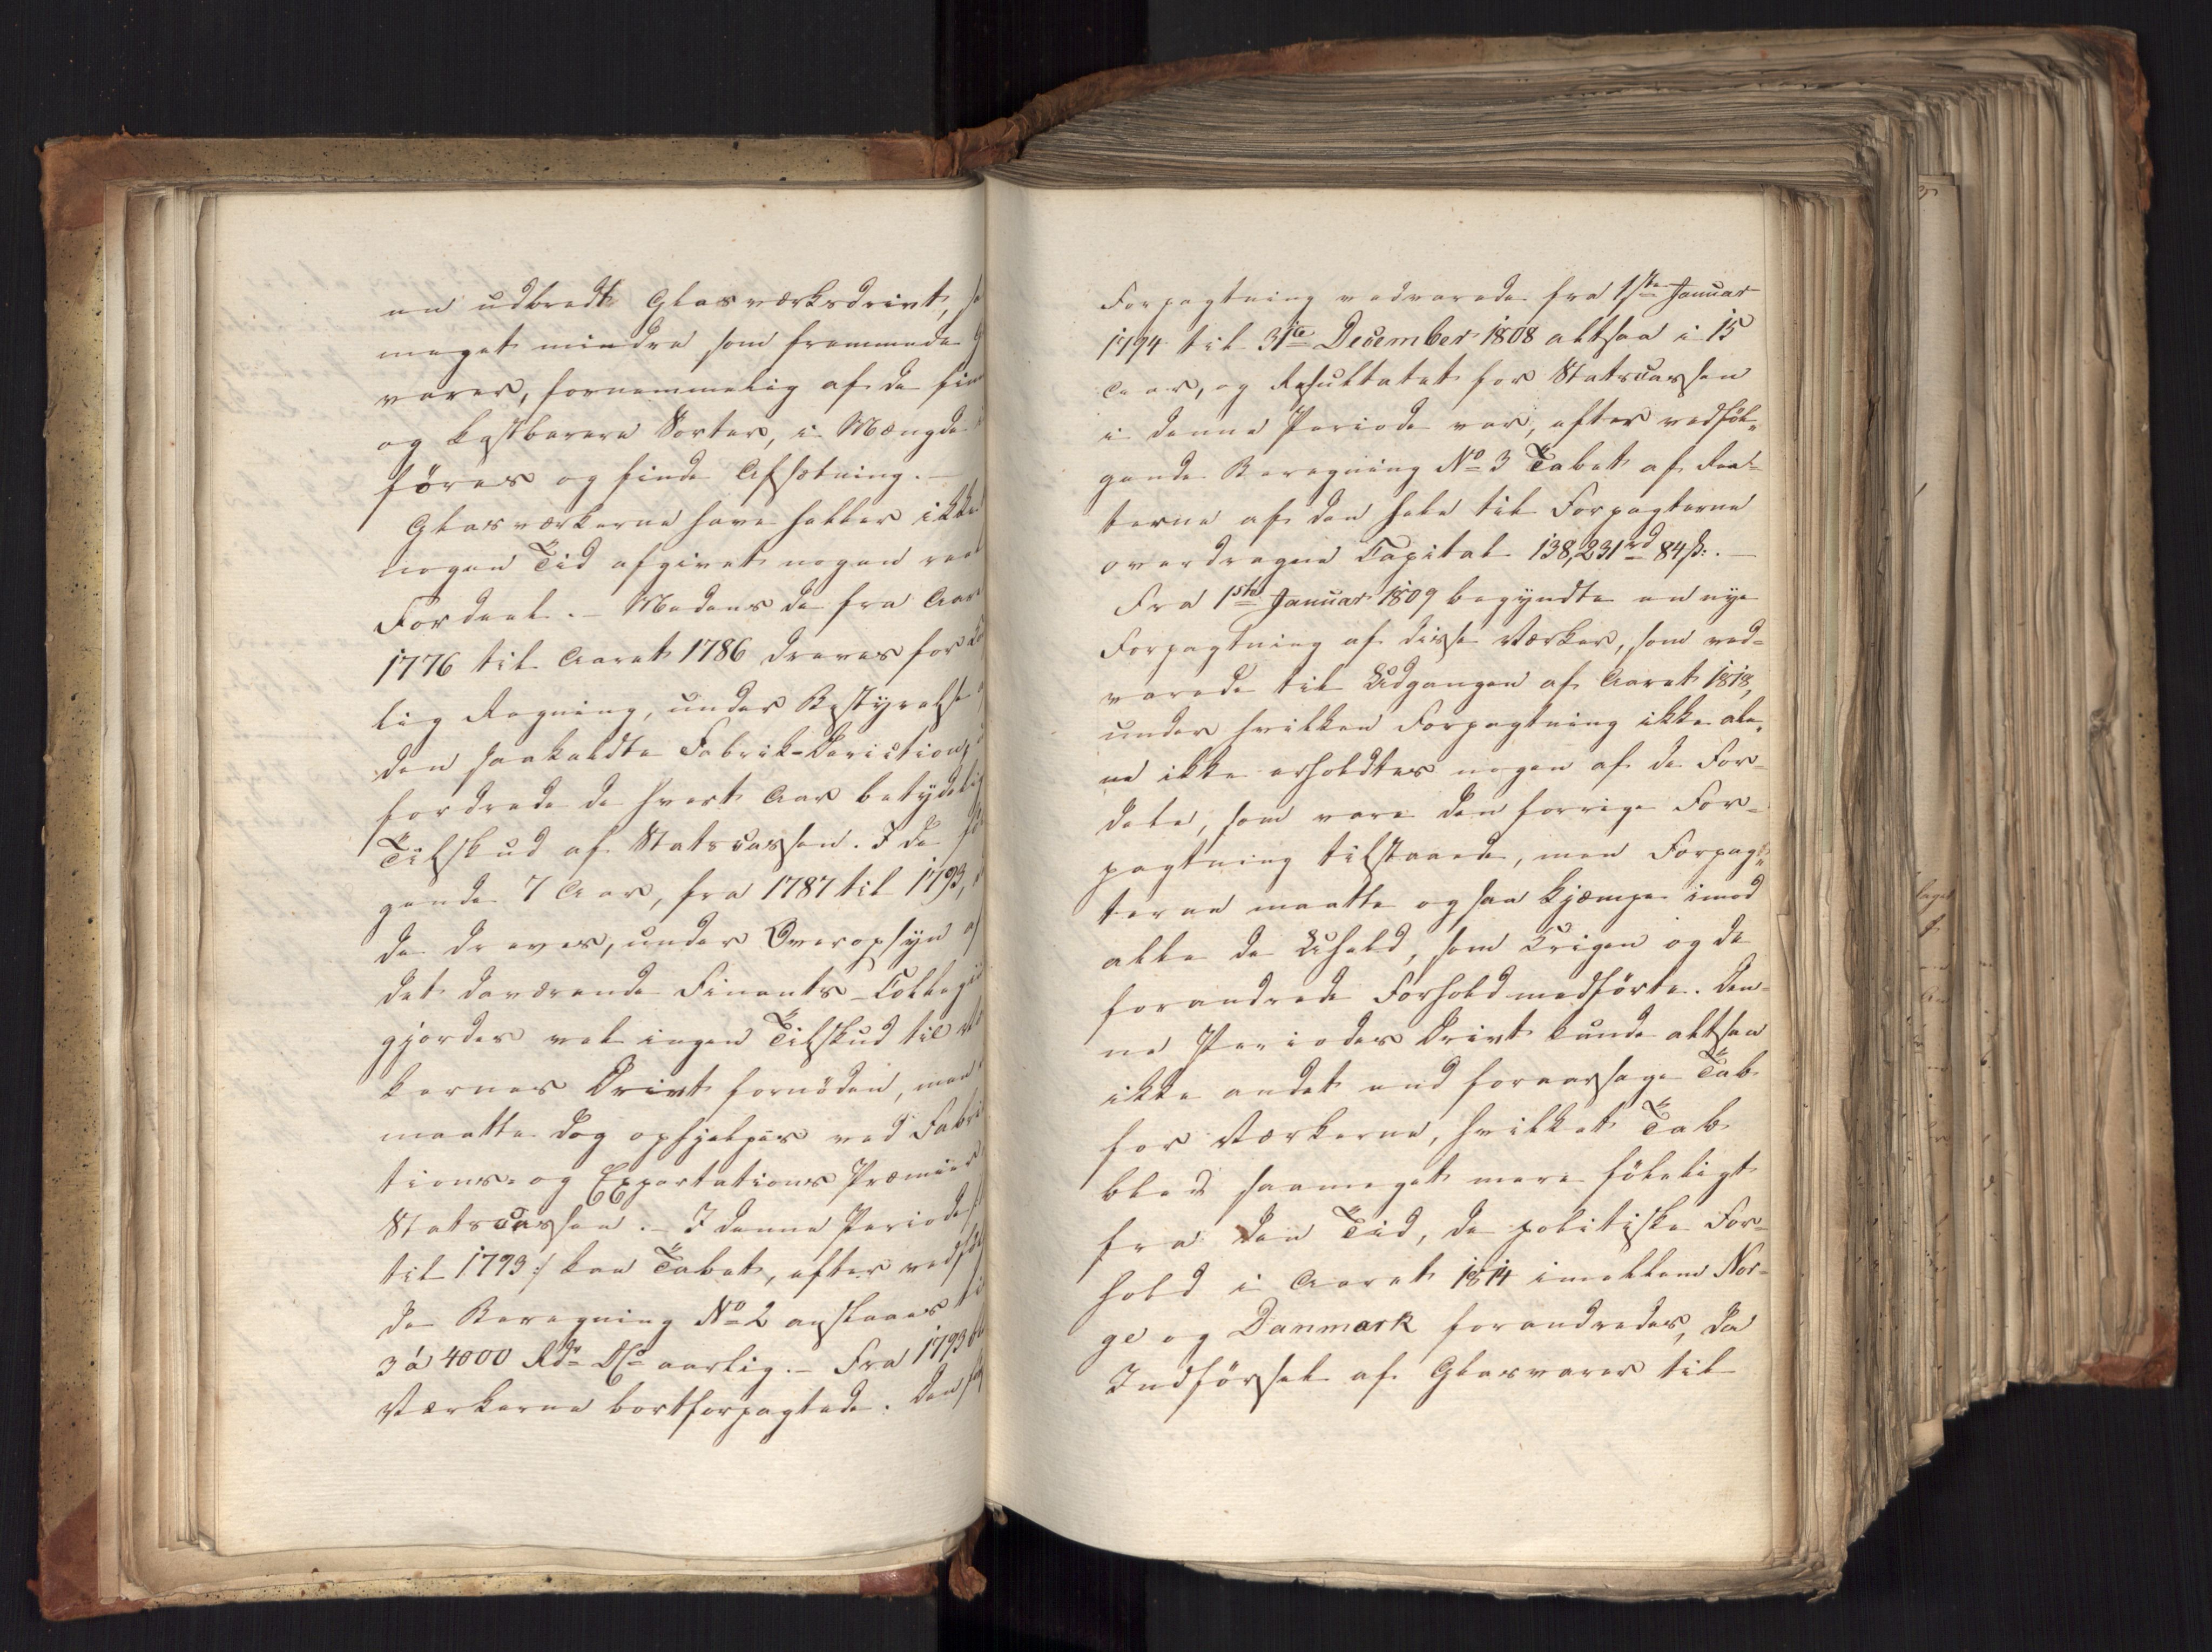 en udbredt Glasværksdrivt, sa
meget mindre som fremmede G
varer, fornemmelig af de fin
og kostbarere Sorter, i Mængde
föres og finde Afsætning. —
Glasværkerne have heller ikke
nogen Tid afgivet nogen reel
Fordeel. — Medens de fra Aar
1776 til Aaret 1786 dreves for
lig Regning, under Bestyrelse
den saakaldte Fabrik-Direction,
fordrede de hvert Aar betydelig
Tilskud af Statscassen. I de föl
gende 7 Aar, fra 1787 til 1793,
de dreves, under Overopsyn af
det daværende Finants-Collegii
gjordes vel ingen Tilskud til Vær
kernes Drivt fornöden, men
maatte dog ophjelpes ved Fabri
tions- og Exportations Præmier
Statscassen. — I denne Periode
til 1793 :/ kan Tabet, efter vedföl
de Beregning No 2 anslaaes til
3 á 4000 Rdr DCo aarlig. — Fra 1793 ble
Værkerne bortforpagtede. Den
Forpagtning vedvarede fra 1ste Januar
1794 til 31te December 1808 altsaa i 15
Aar, og Resultatet for Statscassen
i denne Periode var, efter vedföl„
gende Beregning No 3 Tabet af Ren-
terne af den hele til Forpagterne
overdragne Capital 138,231rd 84ß. —
Fra 1ste Januar 1809 begyndte en nye
Forpagtning af disse Værker, som ved-
varede til Udgangen af Aaret 1818,
under hvilken Forpagtning ikke ale„
ne ikke erholdtes nogen af de For-
dele, som vare den forrige For-
pagtning tilstaaede, men Forpag„
terne maatte ogsaa kjæmpe imod
alle de Uheld, som Krigen og de
forandrede Forhold medförte. Den-
ne Periodes Drivt kunde altsaa
ikke andet end foraarsage Tab
for Værkerne, hvilket Tab
blev saameget mere föleligt
fra den Tid, de politiske For-
hold i Aaret 1814 imellem Nor-
ge og Danmark forandredes, da
Indförsel af Glasvarer til